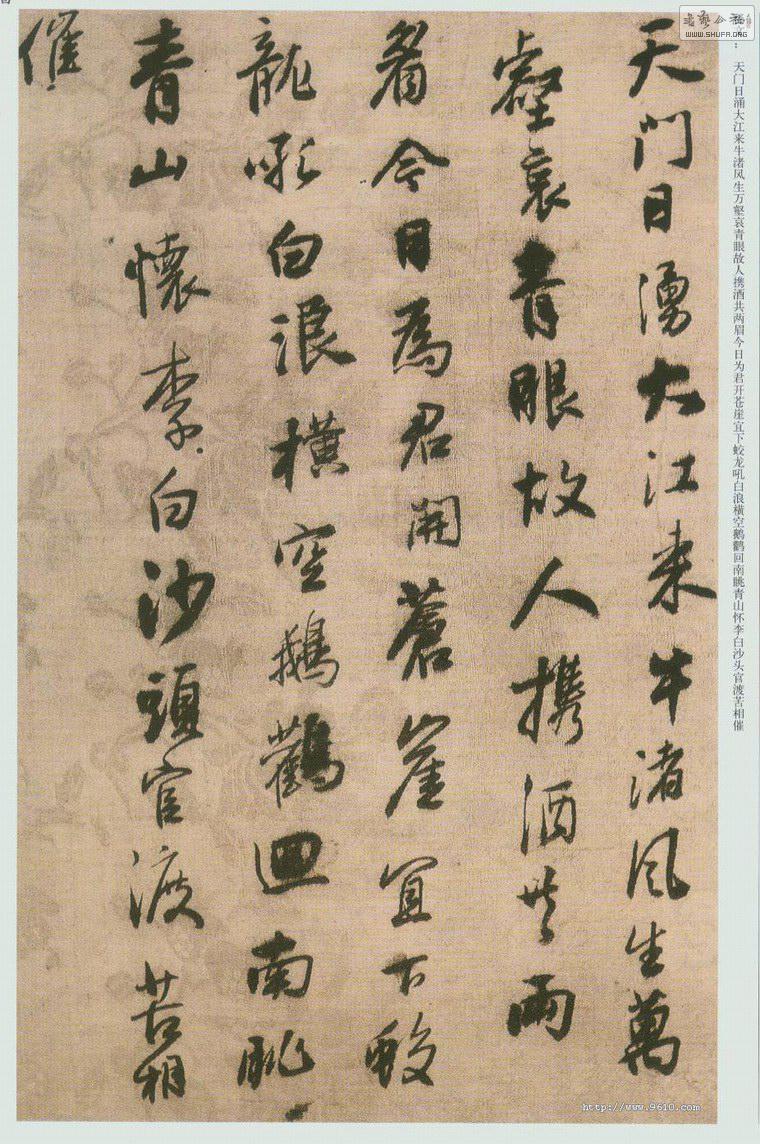 ：天门日涌大江来牛渚风生万壑哀青眼故人携酒共两眉今日为君开苍崖宜下蛟龙吼白浪横空鹅鹳回南眺青山怀李白沙头官渡苦相催
天門日湧大江来牛渚風生萬
壑哀青眼故人携酒共兩
眉今日為君開蒼崖宜下蛟
龍吼白浪橫空鵝鸛迴南眺
青山懷李白沙頭官渡苦相
催
WWW.SHUFA.ORG
http://www.9610.com